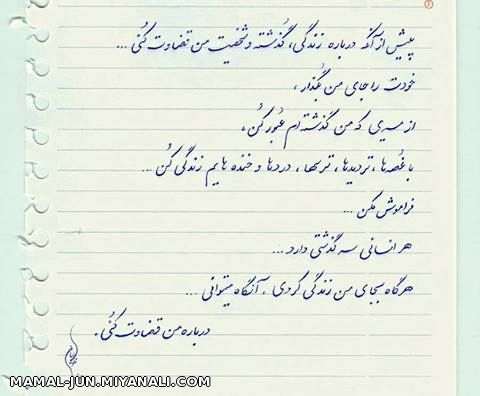 پیش از آنکه درباره زندگی، گذشته و شخصیت من قضاوت کنی ...
خودت را جای من بگذار،
از مسیری که من گذشته ام عبور کن،
با غُصه‌ها، تردیدها، ترسها، دردها و خنده هایم زندگی کُن ...
فراموش مکن ...
هر انسانی سرگذشتی دارد ...
هرگاه بجای من زندگی کردی، آنگاه میتوانی ...
درباره من قضاوت کنی.
MAMAL-JUN.MIYANALI.COM